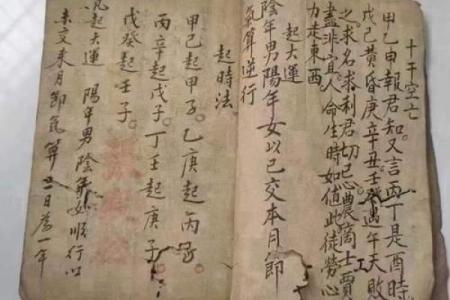 十干空亡
甲乙申報君知又言丙丁是酉時
戊己黃昏庚辛丑壬癸遇午天敗
之求名求利君切忌農商士賈工
盡非宜人命生時如值此徒勞心
力走東西
起大運
陰年男陽年女以已交本月節
氣算逆行
起時法
甲己起甲子。乙庚起丙子
丙辛起戊子。丁壬起庚子
戊癸起壬子。
凡起大運 陽年男陰年女順行以
未交來月節氣算 三日為一年